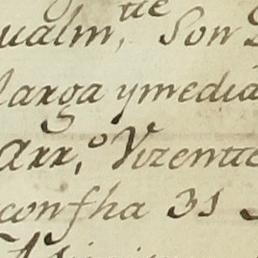 ualm,te Son
larga ymedia
Arr,o Vizente
confha 31